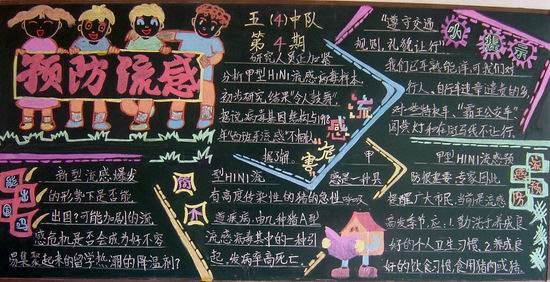 预防流感
五(4)中队
第4期
研究人员正加紧
分析甲型H1N1流感病毒样本,
初步研究结果"令人鼓舞"。
年的西班牙流感"不相似
据了解,
流感危害
甲
型H1N1流
感是一种具
有高度传染性的猪的急性呼吸
道疾病,由几种猪A型
流感病毒其中的一种引
起,发病率高死亡
"遵守交通
规则,礼貌让行"
我们已耳熟能详,可我们对
行人、
对些特权车"霸王公交车"
闯黄灯和在
小提示
新型流感爆发
的形势下是否能
出国?可能加剧的流
感危机是否会成为好不容
易集聚起来的留学热潮的降温剂?
能出国吗
甲型H1N1流感预
防很重要 专家因此
提醒广大市民,当前是流感
高发季节,应:1.勤洗手养成良
好的个人卫生习惯。2.养成良
好的饮食习惯,食用猪肉或猪